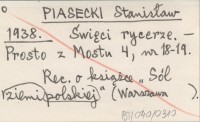 PIASECKI Stanisław
1938. Święci rycerze. –
Prosto z Mostu 4, nr 18-19.
Rec. o książce „Sól
ziemi polskiej" (Warszawa ).